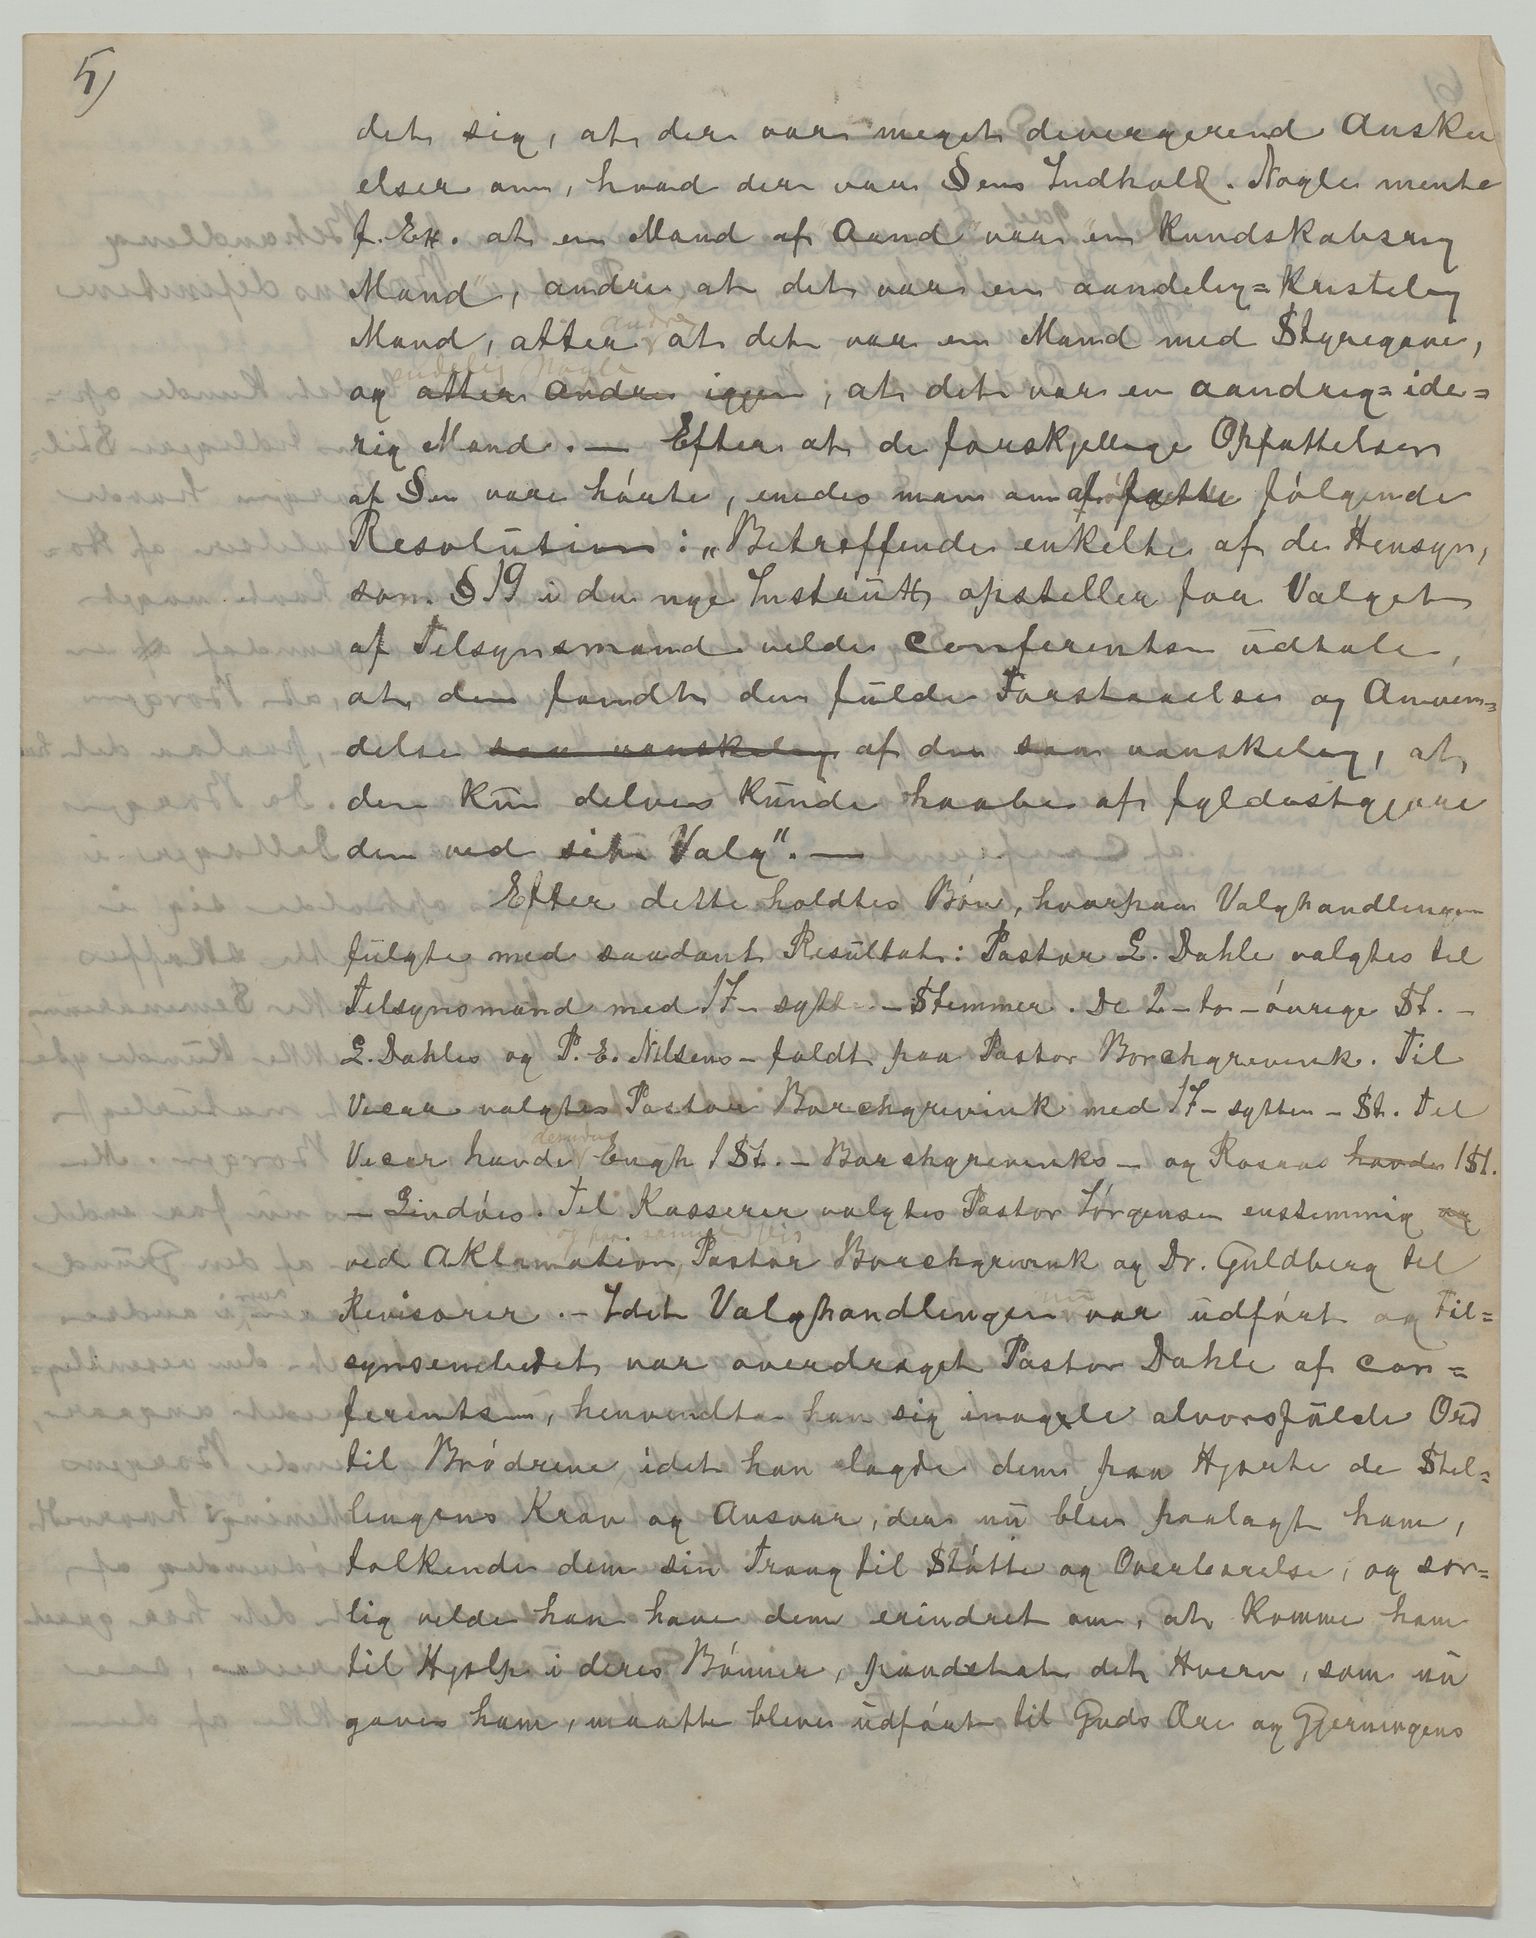 5)
det sig, at der var meget divergerend Ansku
elser om, hvad der var §ens Indhold. Nogle mente
f. Ex. at en Mand af "Aand" var "en kundskabsrig
Mand", andre at det var en aandelig=kristelig
Mand, atter andre at det var en Mand med Styregave,
endelig Nogle
og atter andre igjen, at det var en aandrig=ide=
rig Mand. — Efter at de forskjellige Opfattelser
af §en vare hørte, enedes man om at fatte følgende
Resolution: „Betreffende enkelte af de Hensyn,
som § 19 i den nye Instrux opstiller for Valget
af Tilsynsmand vilde Conferentsen udtale,
at den fandt den fulde Forstaaelse og Anven=
delse saa vanskelig af den saa vanskelig, at
den kun delvis kunde haabe at fyldestgjøre
den ved sit Valg". —
Efter dette holdtes Bøn, hvorpaa Valghandlingen
fulgte med saadant Resultat: Pastor L. Dahle valgtes til
Tilsynsmand med 17 - sytten - Stemmer. De 2 - to - øvrige St. -
L. Dahles og P. E. Nilsens - faldt paa Pastor Borchgrevink. Til
Vicar valgtes Pastor Borchgrevink med 17 - sytten - St. Til
Vicar havde desuden Engh 1 St. - Borchgrevinks - og Rosaas havde 1 St.
- Lindøes. Til Kasserer valgtes Pastor Jørgensen enstemmig og
ved Aklamation, og paa samme Vis Pastor Borchgrevink og Dr. Guldberg til
Revisorer. - Idet Valghandlingen nu var udført og Til=
synsembedet var overdraget Pastor Dahle af Con=
ferentsen, henvendte han sig i nogle alvorsfulde Ord
til Brødrene idet han lagde dem paa Hjerte de Stil=
lingens Krav og Ansvar, der nu blev paalagt ham,
tolkende dem sin Trang til Støtte og Overbærelse, og sær=
lig vilde han have dem erindret om, at komme ham
til Hjælp i deres Bønner, paadetat det Hverv, som nu
gaves ham, maatte blive udført til Guds Ære og Gjerningens